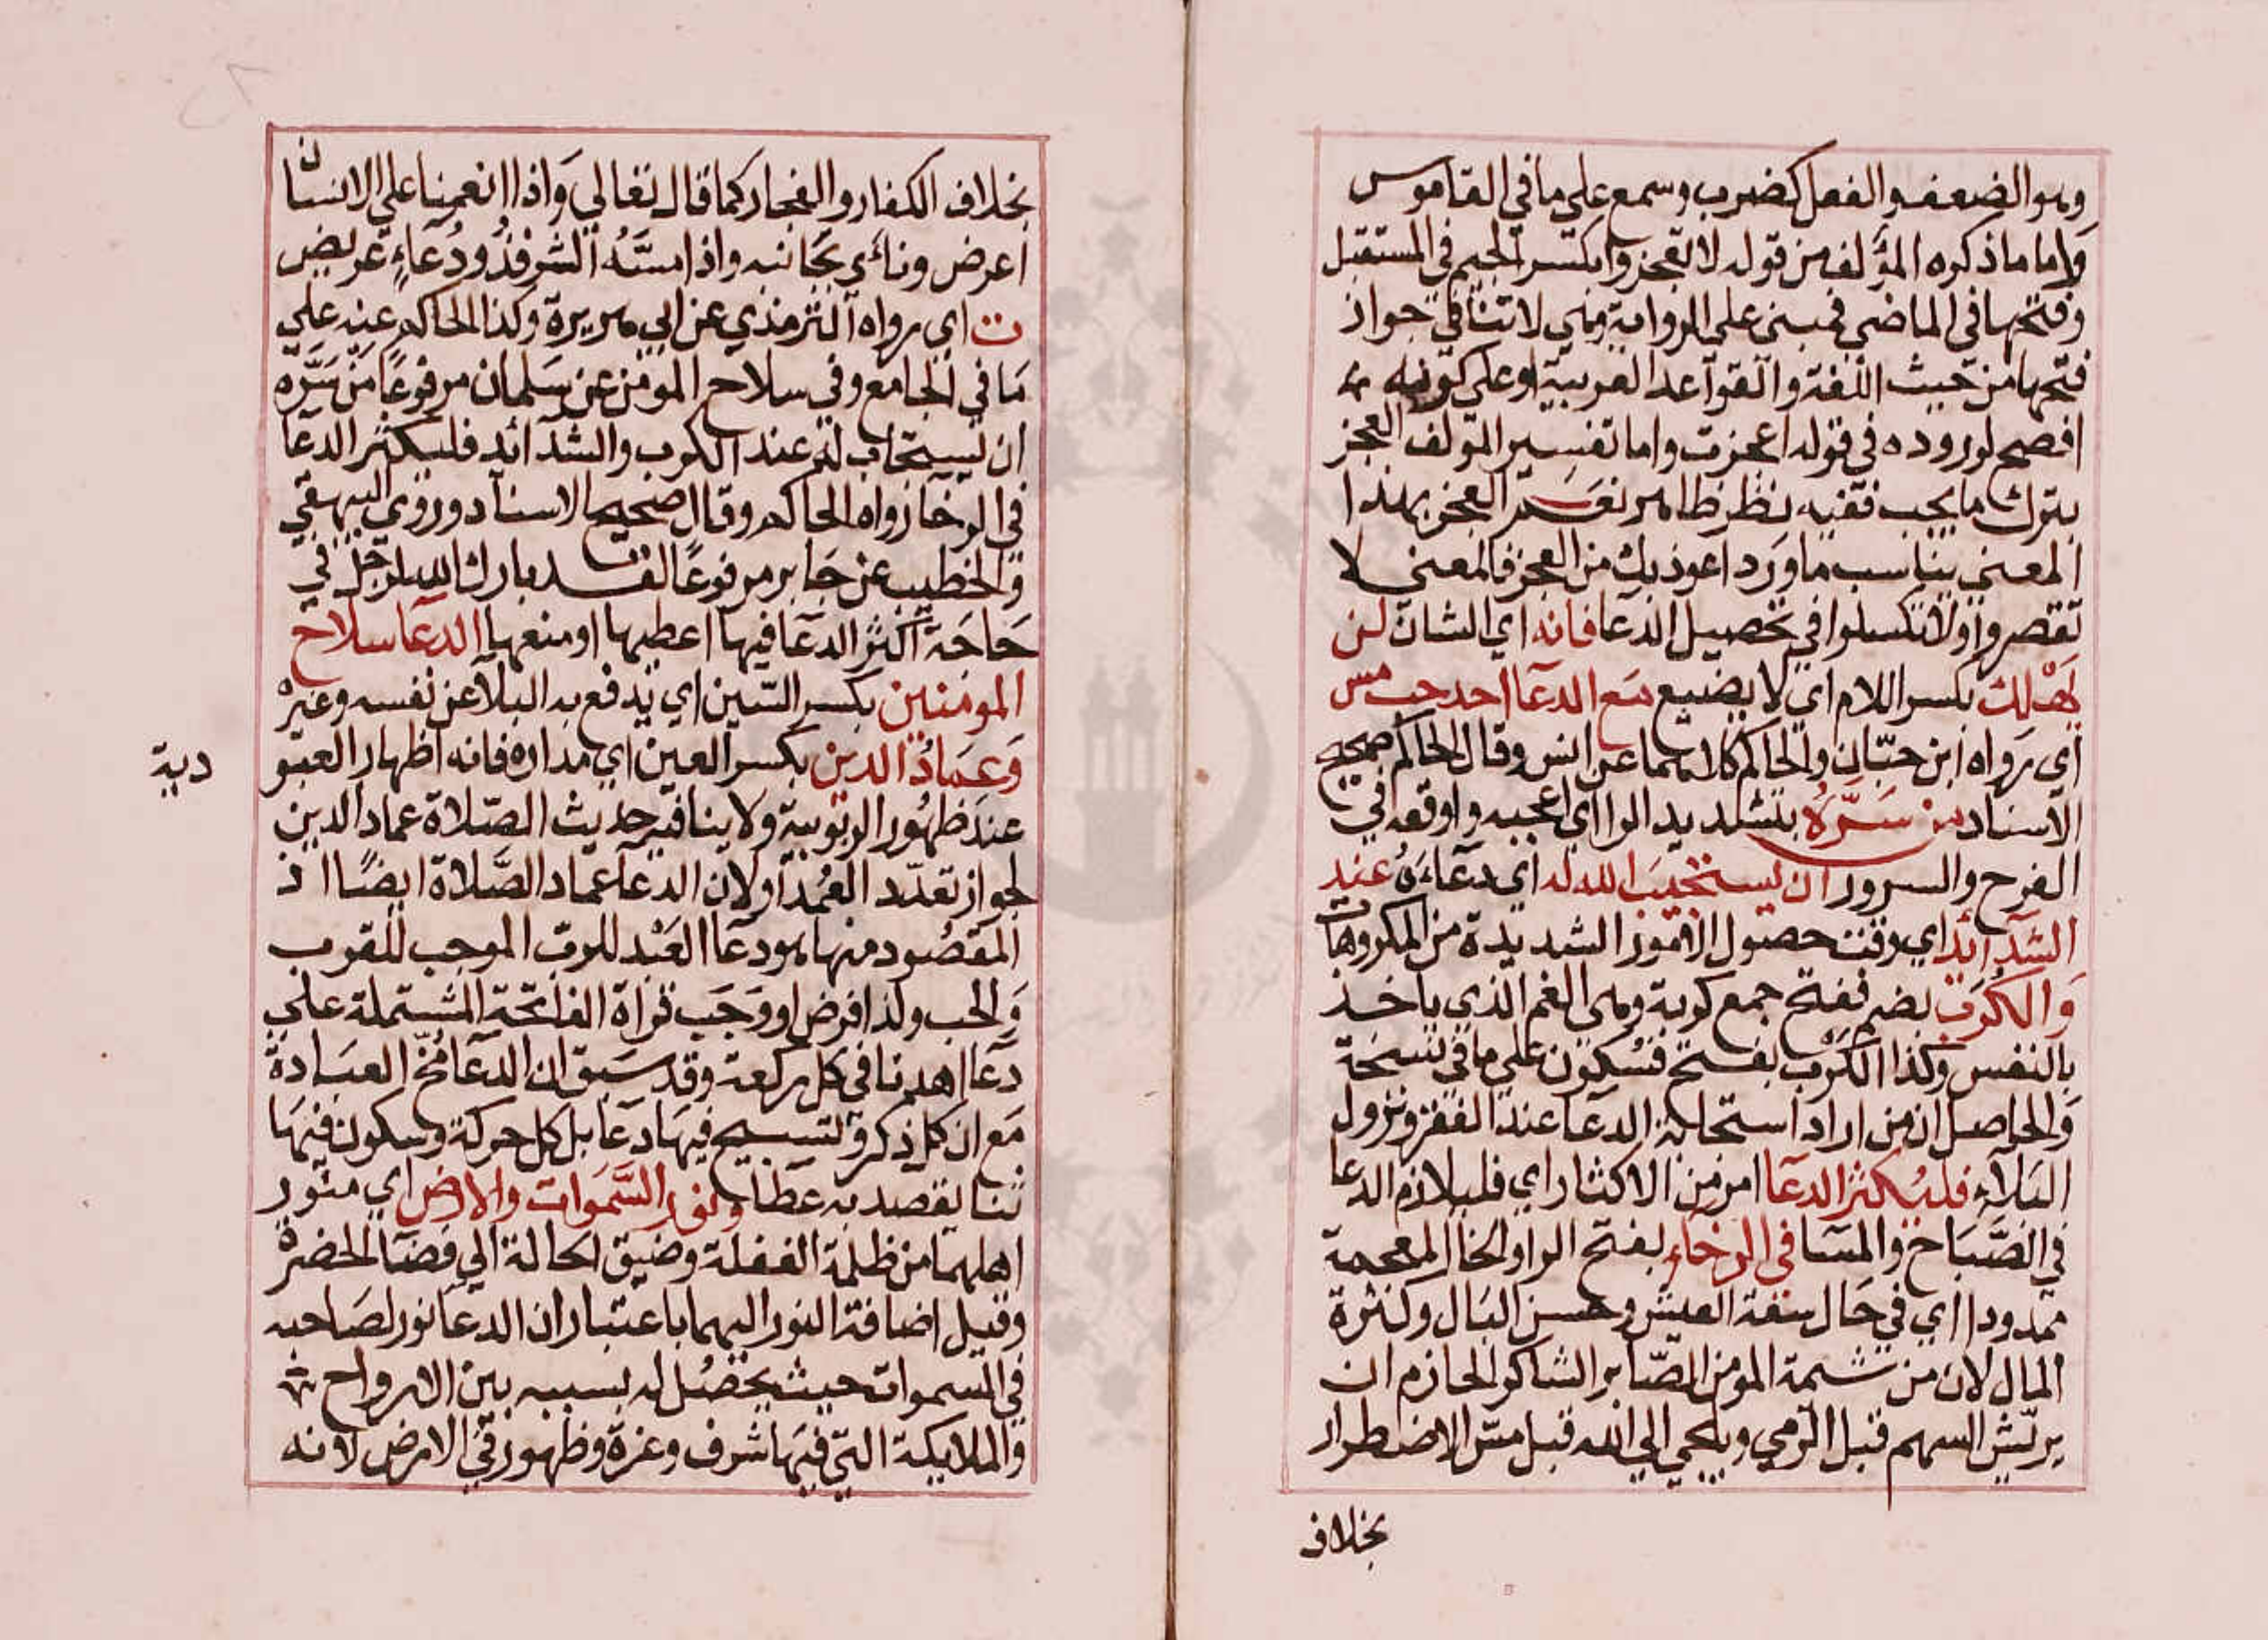 وهو الضعف والفعل كضرب وسمع على ما في القاموس
واما ما ذكره المؤلف من قوله لا تعجزوا بكسر الجيم في المستقبل
وفتحها في الماضي فمبني على الرواية وهي لا تنافي جواز
فتحها من حيث اللغة والقواعد العربية او على كونه
افصح لوروده في قوله اعجزت واما تفسير المؤلف العجز
بترك ما يجب ففيه نظر ظاهر نعم العجز بهذا
المعنى يناسب ما ورد اعوذ بك من العجز فالمعنى لا
تقصروا ولا تكسلوا في تحصيل الدعا فانه اي الشان لن
يهلك بكسر اللام اي لا يضيع مع الدعا احد حب مس
اي رواه ابن حبان والحاكم كلاهما عن انس وقال الحاكم صحيح
الاسناد من سره بتشديد الرا اي اعجبه واوقعه في
الفرح والسرور ان يستجيب الله له اي دعاءه عند
الشدائد اي وقت حصول الامور الشديدة من المكروهات
والكرب بضم ففتح جمع كربة وهي الغم الذي ياخذ
بالنفس وكذا الكرب بفتح فسكون على ما في نسخة
والحاصل ان من اراد استجابة الدعا عند الفقر ونزول
البلاء فليكثر الدعا امر من الاكثار اي فليلازم الدعا
في الصباح والمسا في الرخاء بفتح الرا والخا المعجمة
ممدودا اي في حال سعة العيش وحسن البال وكثرة
المال لان من شيمة المؤمن الصابر الشاكر الحازم ان
يريش السهم قبل الرمي ويلتجي الى الله قبل مس الاضطرار
بخلاف
بخلاف الكفار والفجار كما قال تعالي واذا انعمنا على الانسان
اعرض ونأى بجانبه واذا مسه الشر فذو دعاء عريض
ت اي رواه الترمذي عن ابي هريرة وكذا الحاكم عنه على
ما في الجامع وفي سلاح المومن عن سلمان مرفوعا من سره
ان يستجاب له عند الكرب والشدائد فليكثر الدعا
في الرخا رواه الحاكم وقال صحيح الاسناد وروي البيهقي
والخطيب عن جابر مرفوعا لقد بارك الله لرجل في
حاجة اكثر الدعا فيها اعطيها او منعها الدعا سلاح
المومنين بكسر السين اي يدفع به البلا عن نفسه وغيره
وعماد الدين بكسر العين اي مداره فانه اظهار العبو
دية
عند ظهور الربوبية ولا ينافيه حديث الصلاة عماد الدين
لجواز تعدد العمد او لان الدعا عماد الصلاة ايضا اذ
المقصود منها هو دعا العبد للرب الموجب للقرب
والحب ولذا فرض او وجب قراة الفاتحة المشتملة على
دعا اهدنا في كل ركعة وقد سبق ان الدعا مخ العبادة
مع ان كل ذكر وتسبيح فيها دعا بل كل حركة وسكون فيها
ثنا يقصد به عطا ونور السموات والارض اي منور
اهلهما من ظلمة الغفلة وضيق الحالة الي فضا الحضرة
وقيل اضافة النور اليهما باعتبار ان الدعا نور لصاحبه
في السموات حيث يحصل له بسببه بين الارواح
والملايكة التي فيها شرف وعزة وظهور في الارض لانه